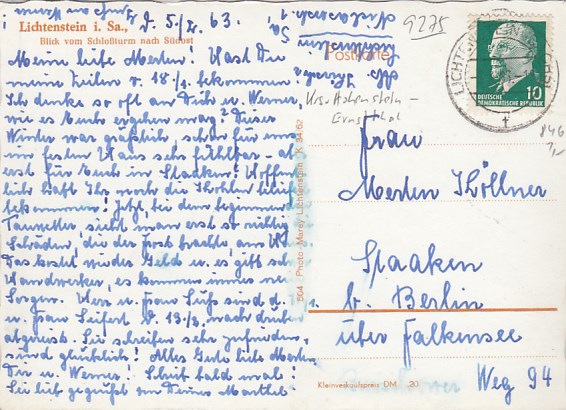 Lichtenstein i. Sa.,
Blick vom Schloßturm nach Südost
d. 5./2. 63.
Meine liebe Merten! Hast Du
meine Zeilen v. 18/1. bekommen?
Ich denke so oft an Dich u. Werner,
wie es Euch ergehen mag? Dieser
Winter war gräßlich, schon für uns
im festen Haus sehr fühlbar - ab
erst für Euch in Staaken! Hoffent
lich habt Ihr noch die Kohlen
bekommen! Jetzt, bei dem beginnenden
Tauwetter, sieht man erst so richtig
Schäden, die der Frost brachte, am
Das kostet wieder Geld u. es gibt
Handwerker, es kommen immer ne
Sorgen. Herr u. Frau Süß sind d.
u. Frau Seifert d. 13/2. nach drüben
abgereist. Sie schreiben sehr zufrieden,
sind glücklich! Alles Gute liebe Merten
Dir u. Werner! Schreib bald mal!
Sei lieb gegrüßt von Deiner Marthel
504 Photo-Marey Lichtenstein K 34/62
Postkarte
9275
Krs. Hohenstein-
Ernstthal
DEUTSCHE
DEMOKRATISCHE REPUBLIK
10
Frau
Merten Köllner
Staaken
b. Berlin
über Falkensee
Weg 94
Kleinverkaufspreis DM 20